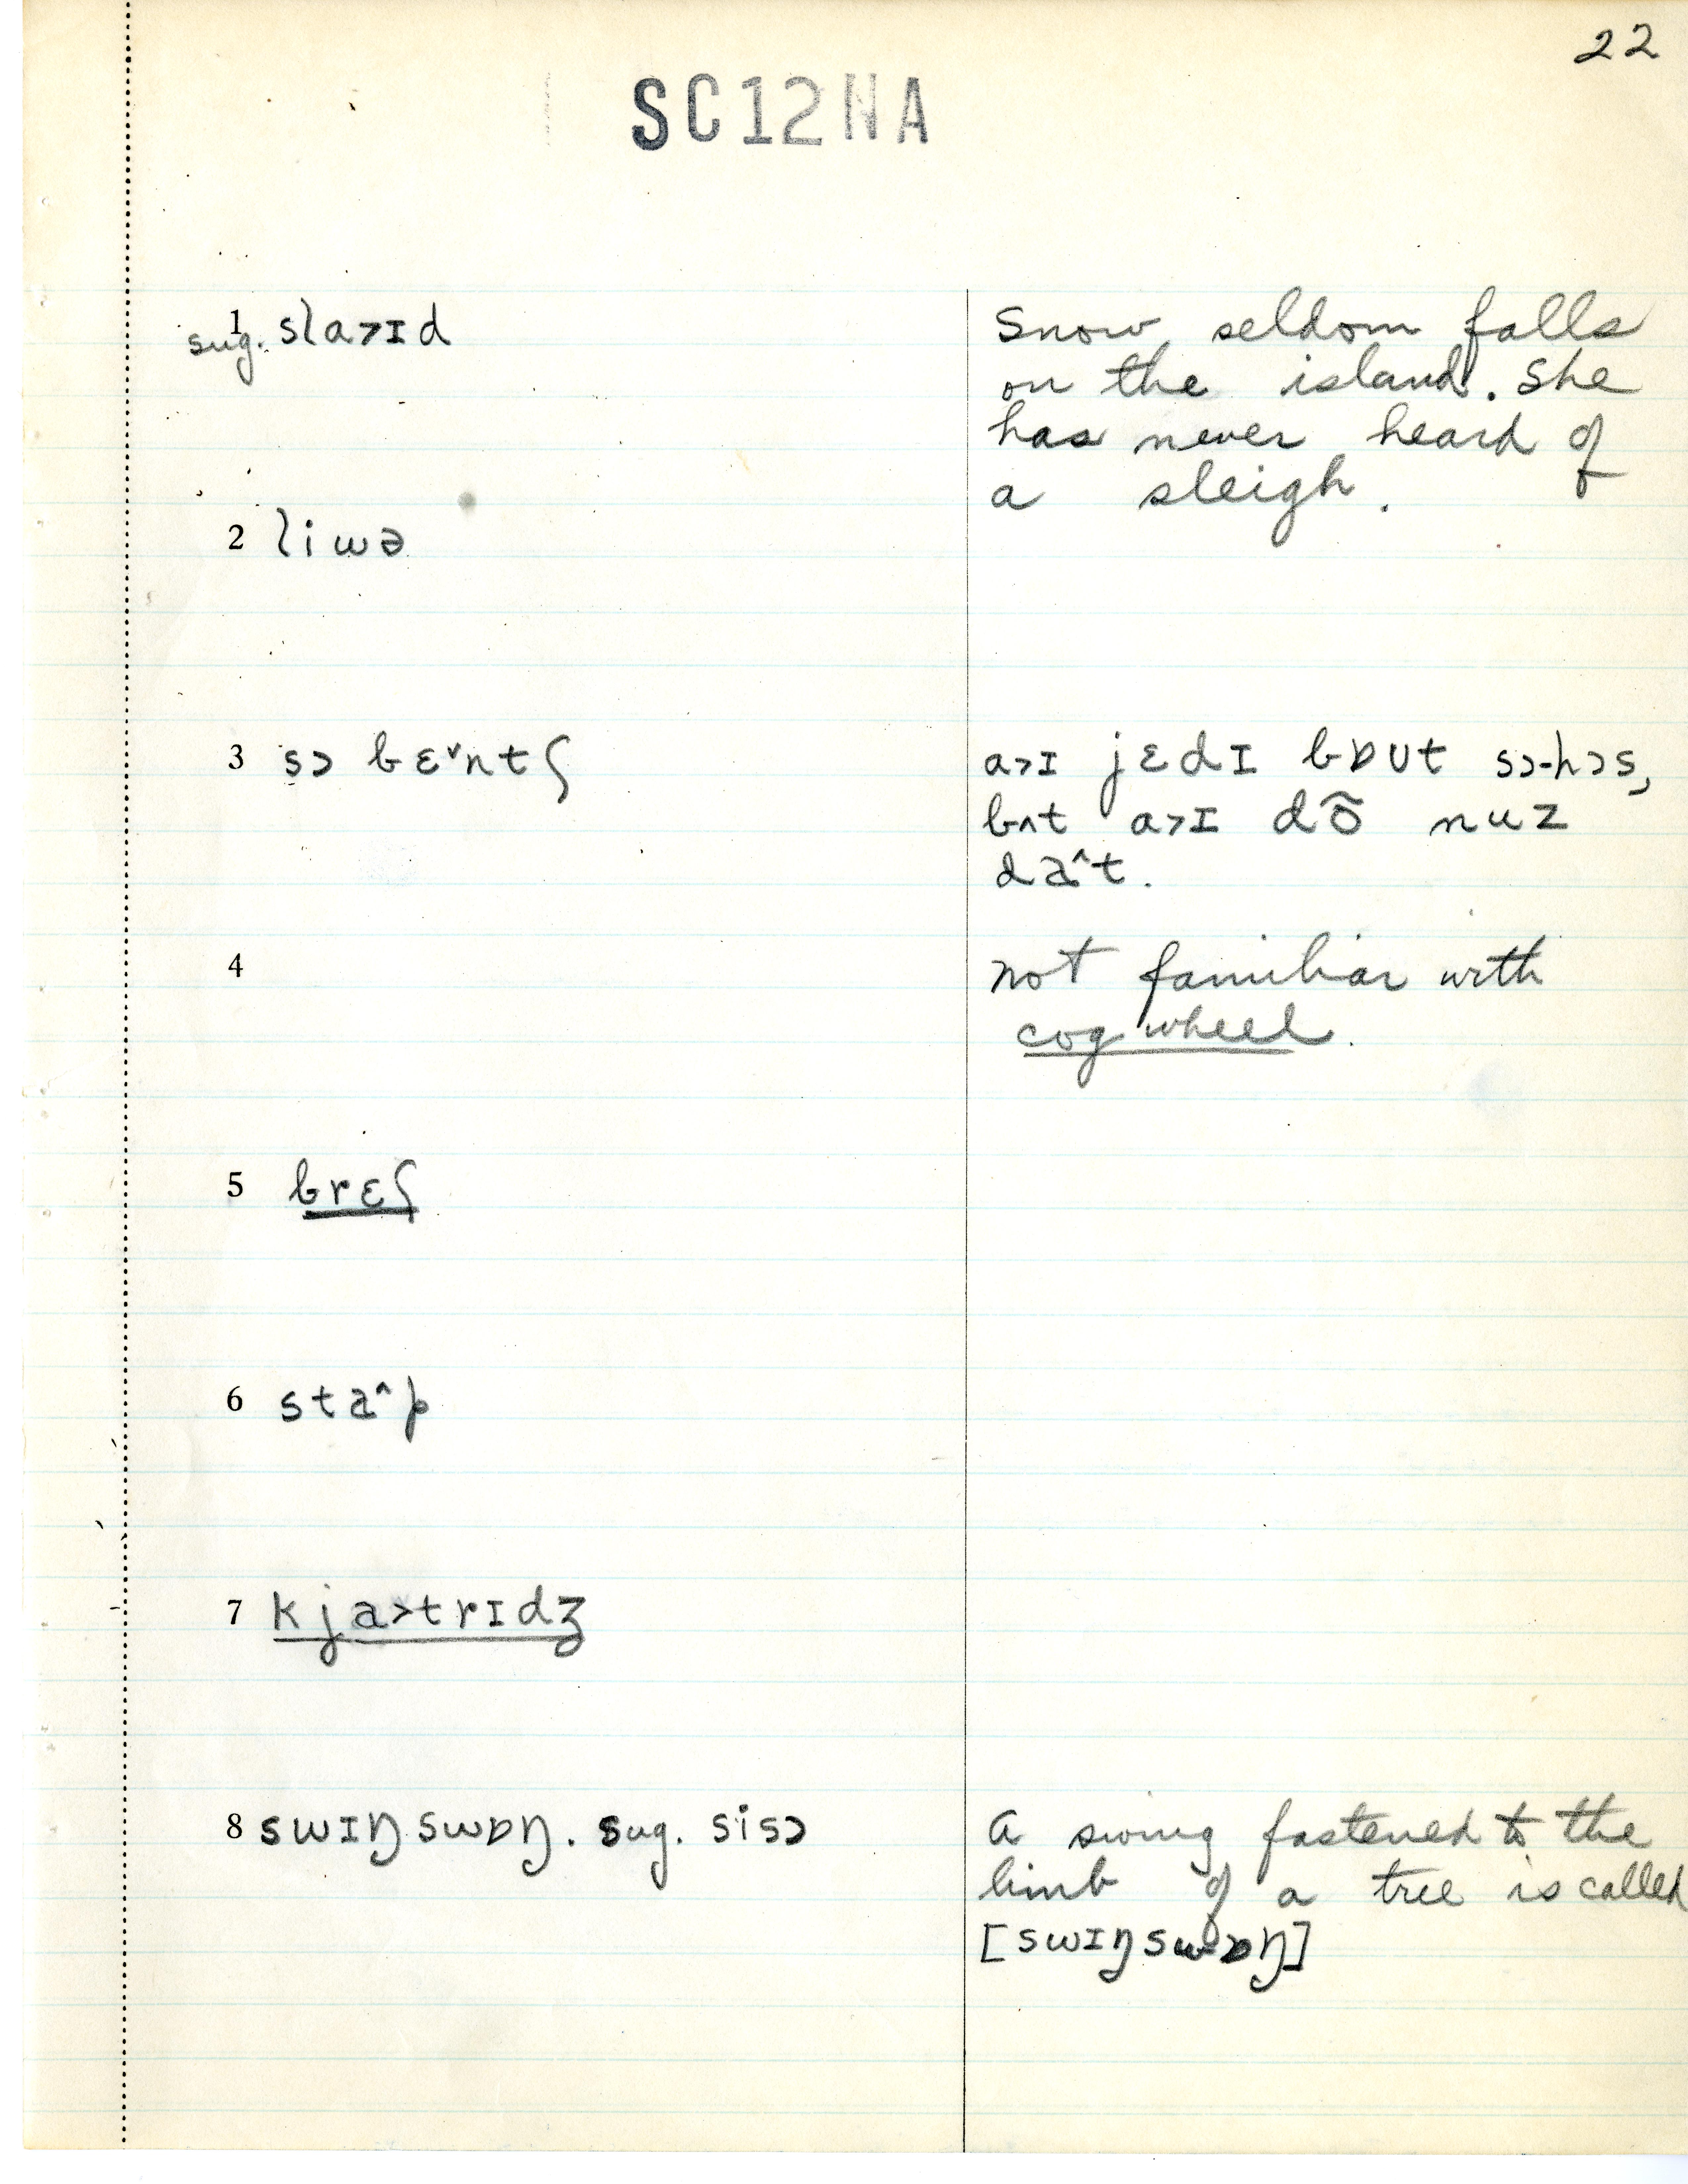 22
SC12NA
1 sug. sla˃ɪd
Snow seldom falls
on the island. She
has never heard of
a sleigh.
2 liwə
3 sɔ bɛ˅ntʃ
a˃ɪ jɛdɪ bɒʊt sɔ-hɔs,
bʌt a˃ɪ dõ nuz
da˄t.
4
not familiar with
cog wheel.
5 brɛʃ
6 sta˄p
7 kja˃trɪdʒ
8 swɪŋswɒŋ. sug. sisɔ
A swing fastened to the
limb of a tree is called
[swɪŋswɒŋ]